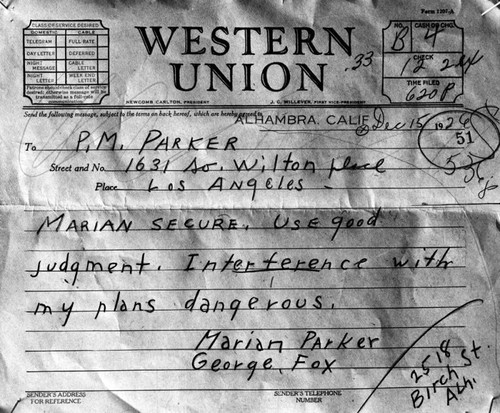 Form 1207-A
CLASS OF SERVICE DESIRED
DOMESTIC CABLE
TELEGRAM FULL RATE
DAY LETTER DEFERRED
NIGHT MESSAGE CABLE LETTER
NIGHT LETTER WEEK END LETTER
Patrons should check class of service desired; otherwise message will be transmitted as a full-rate
WESTERN UNION
NEWCOMB CARLTON, PRESIDENT J. C. WILLEVER, FIRST VICE-PRESIDENT
33
NO. CASH OR CHG.
B 4
CHECK
12
TIME FILED
620P
Send the following message, subject to the terms on back hereof, which are hereby agreed to
ALHAMBRA, CALIF. Dec 15 1926
51
To P.M. PARKER
Street and No. 1631 So. Wilton place
Place Los Angeles -
MARIAN SECURE. USE good
judgment. Interference with
my plans dangerous.
Marian Parker
George Fox
2518
Birch St
Alh.
SENDER'S ADDRESS FOR REFERENCE
SENDER'S TELEPHONE NUMBER